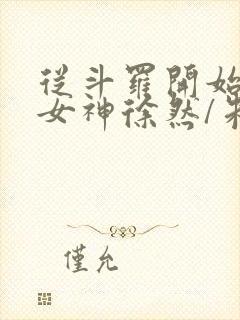 從斗羅開始
女神徐然/朱
僅允